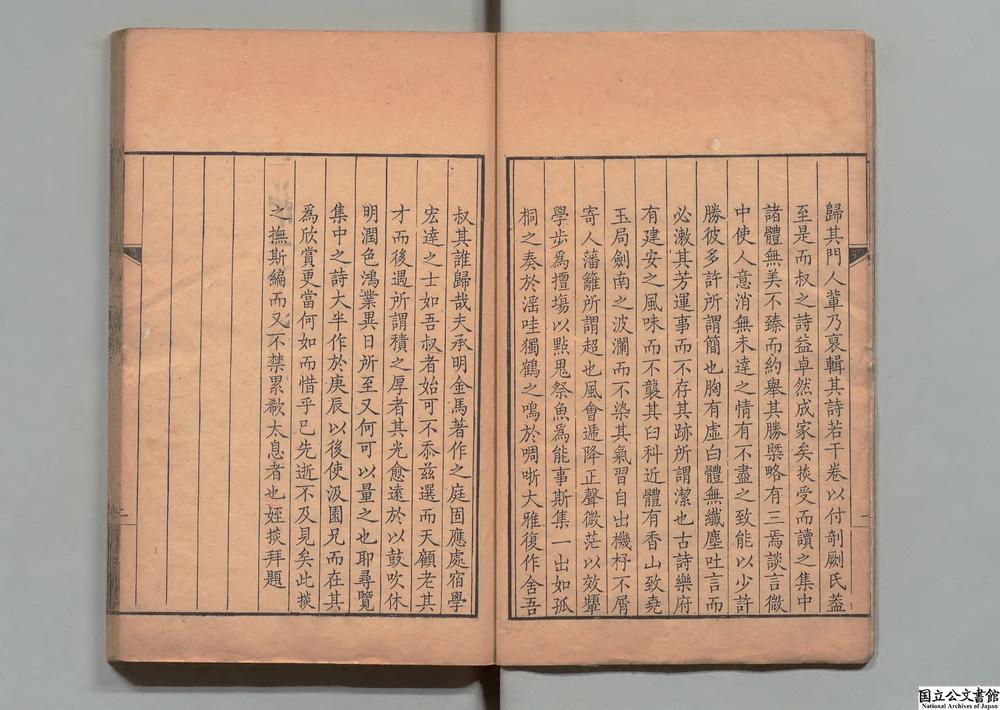 歸其門人輩乃裒輯其詩若干卷以付剞劂氏葢
至是而叔之詩益卓然成家矣掞受而讀之集中
諸體無美不臻而約舉其勝槩略有三焉談言微
中使人意消無未達之情有不盡之致能以少許
勝彼多許所謂簡也胸有虛白體無纖塵吐言而
必漱其芳運事而不存其跡所謂潔也古詩樂府
有建安之風味而不襲其臼科近體有香山致堯
玉局劍南之波瀾而不染其氣習自出機杼不屑
寄人藩籬所謂超也風會遞降正聲微茫以效顰
學步為擅塲以點鬼祭魚為能事斯集一出如孤
桐之奏於滛哇獨鶴之鳴於啁哳大雅復作舍吾
叔其誰歸哉夫承明金馬著作之庭固應處宿學
宏達之士如吾叔者始可不忝茲選而天顧老其
才而後遇所謂積之厚者其光愈遠於以鼓吹休
明潤色鴻業異日所至又何可以量之也耶尋覽
集中之詩大半作於庚辰以後使汲園兄而在其
為欣賞更當何如而惜乎已先逝不及見矣此掞
之撫斯編而又不禁累欷太息者也姪掞拜題
国立公文書館
National Archives of Japan